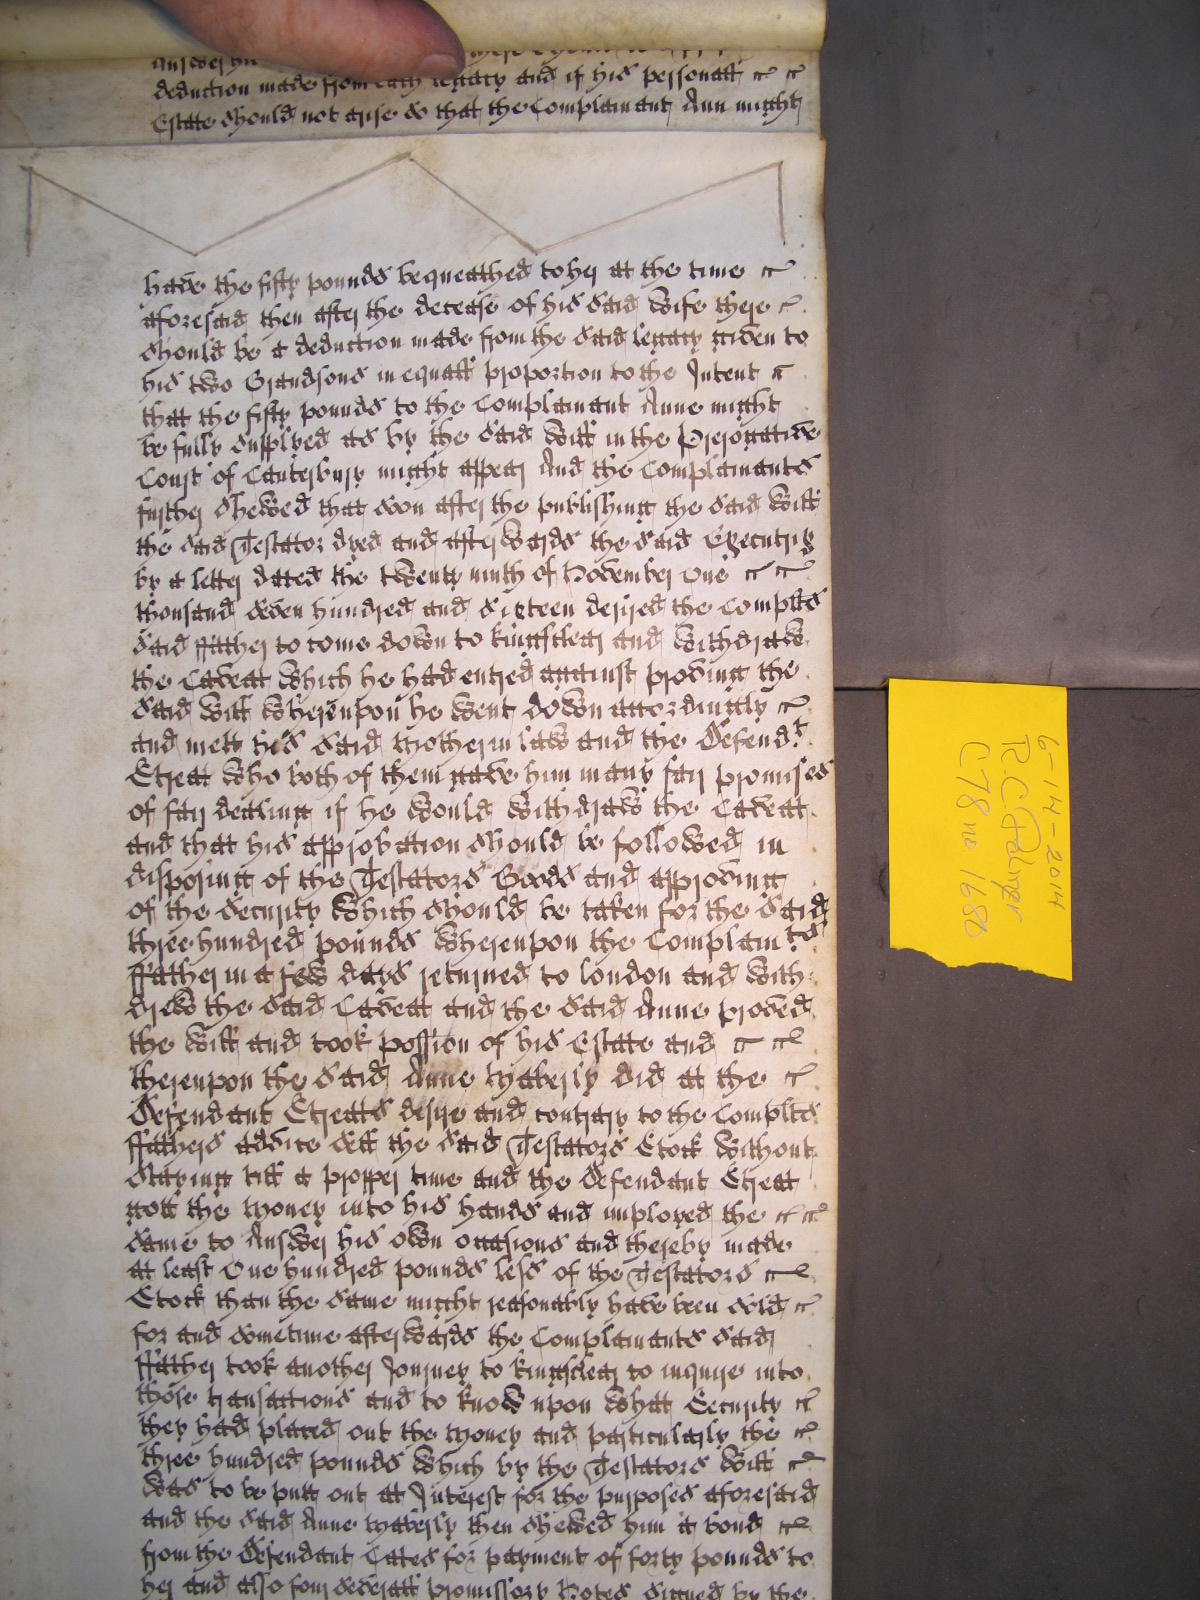 deduction made from each legacy and if his personall
Estate should not arise so that the Complainant Ann might
have the fifty pounds bequeathed to her at the time
aforesaid then after the decease of his said wife there
should be a deduction made from the said legacy given to
his two Grandsons in equall proportion to the Intent
that the fifty pounds to the Complainant Anne might
be fully supplyed as by the said Will in the Prerogative
Court of Canterbury might appear And the Complainants
further shewed that soon after the publishing the said Will
the said Testator dyed and afterwards the said Executrix
by a letter dated the twenty ninth of November One
thousand seven hundred and sixteen desired the Complts
said ffather to come down to Kingsclear and withdraw
the Caveat which he had entred against proving the
said Will Whereupon he went down accordingly
and mett his said Mother in law and the Defendt
Etreat who both of them gave him many fair promises
of fair dealing if he would withdraw the Caveat
and that his approbation should be followed in
disposing of the Testators Goods and approving
of the security which should be taken for the said
three hundred pounds whereupon the Complaints
ffather in a few days returned to london and with
drew the said Caveat and the said Anne proved
the Will and took possion of his Estate and
thereupon the said Anne Myberly did at the
Defendant Etreats desire and contrary to the Complts
ffathers advice sell the said Testators Stock without
staying till a propper time and the Defendant Etreat
gott the money into his hands and imployed the
same to Answer his own occasions and thereby made
at least One hundred pounds less of the Testators
Stock than the same might reasonably have been sold
for and sometime afterwards the Complainants said
ffather took another Journey to Kingsclear to inquire into
those transactions and to know upon what Security
they had placed out the money and particularly the
three hundred pounds which by the Testators Will
was to be putt out at Interest for the purposes aforesaid
and the said Anne Myberly then shewed him a bond
from the Defendant Cates for payment of forty pounds to
her and also four severall promissory Notes signed by the
6-14-2014
R. C. Palmer
C78 no 1680